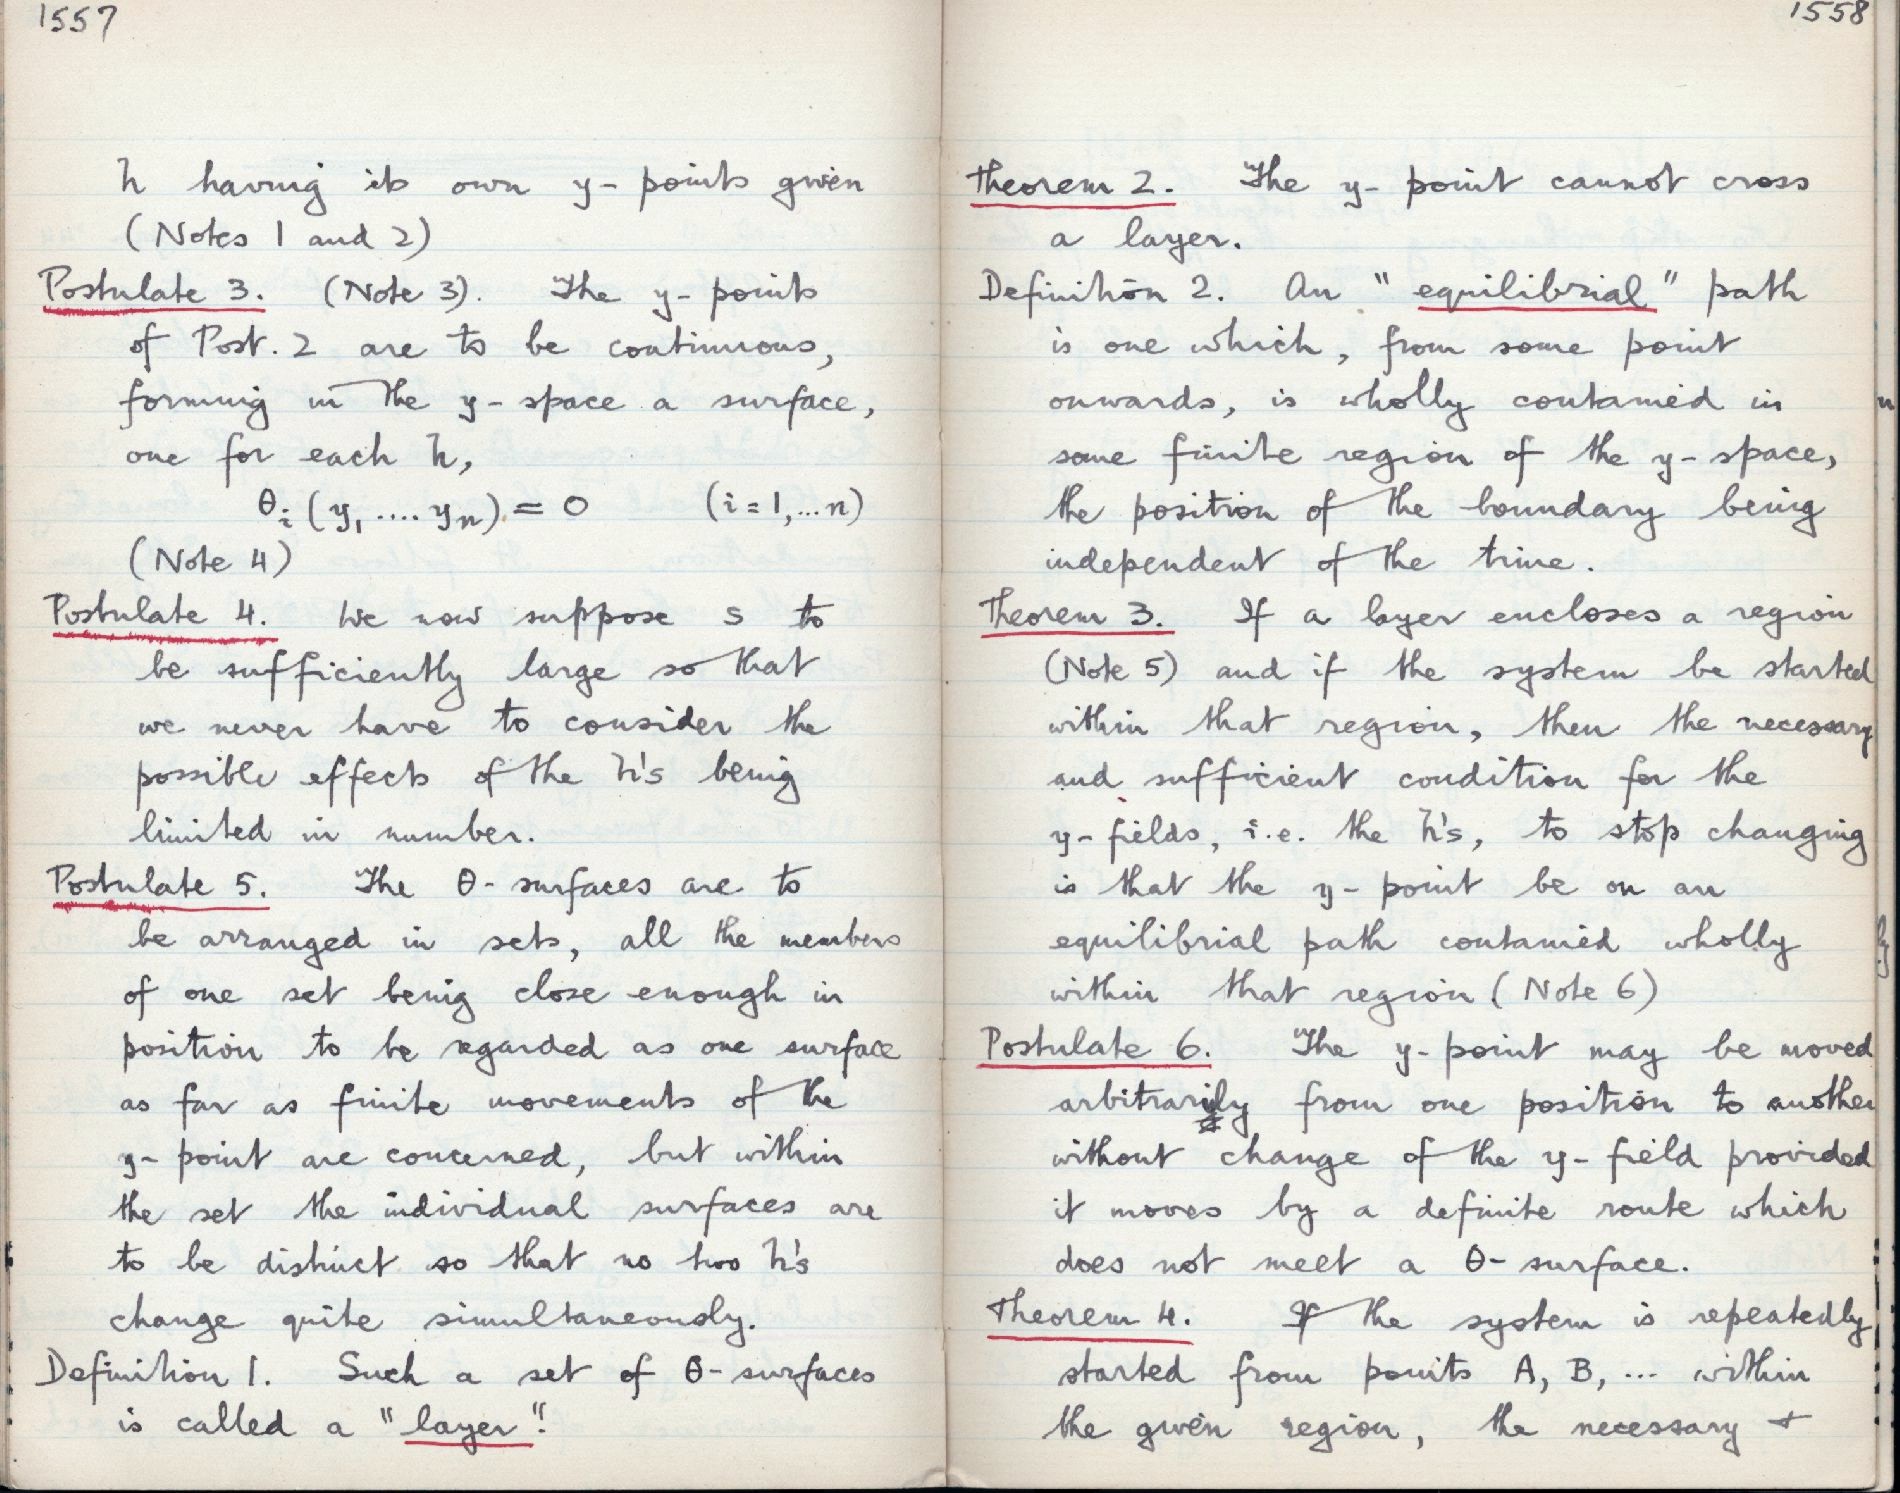 1557
h having its own y-points given
(Notes 1 and 2)
Postulate 3. (Note 3). The y-points
of Post. 2 are to be continuous,
forming in the y-space a surface,
one for each h,
θi (y1 .... yn) = 0 (i = 1, ... n)
(Note 4)
Postulate 4. We now suppose s to
be sufficiently large so that
we never have to consider the
possible effects of the h's being
limited in number.
Postulate 5. The θ-surfaces are to
be arranged in sets, all the members
of one set being close enough in
position to be regarded as one surface
as far as finite movements of the
y-point are concerned, but within
the set the individual surfaces are
to be distinct so that no two h's
change quite simultaneously.
Definition 1. Such a set of θ-surfaces
is called a "layer".
1558
Theorem 2. The y-point cannot cross
a layer.
Definition 2. An "equilibrial" path
is one which, from some point
onwards, is wholly contained in
some finite region of the y-space,
the position of the boundary being
independent of the time.
Theorem 3. If a layer encloses a region
(Note 5) and if the system be started
within that region, then the necessary
and sufficient condition for the
y-fields, i.e. the h's, to stop changing
is that the y-point be on an
equilibrial path contained wholly
within that region (Note 6)
Postulate 6. The y-point may be moved
arbitrarily from one position to another
without change of the y-field provided
it moves by a definite route which
does not meet a θ-surface.
Theorem 4. If the system is repeatedly
started from points A, B, ... within
the given region, the necessary +